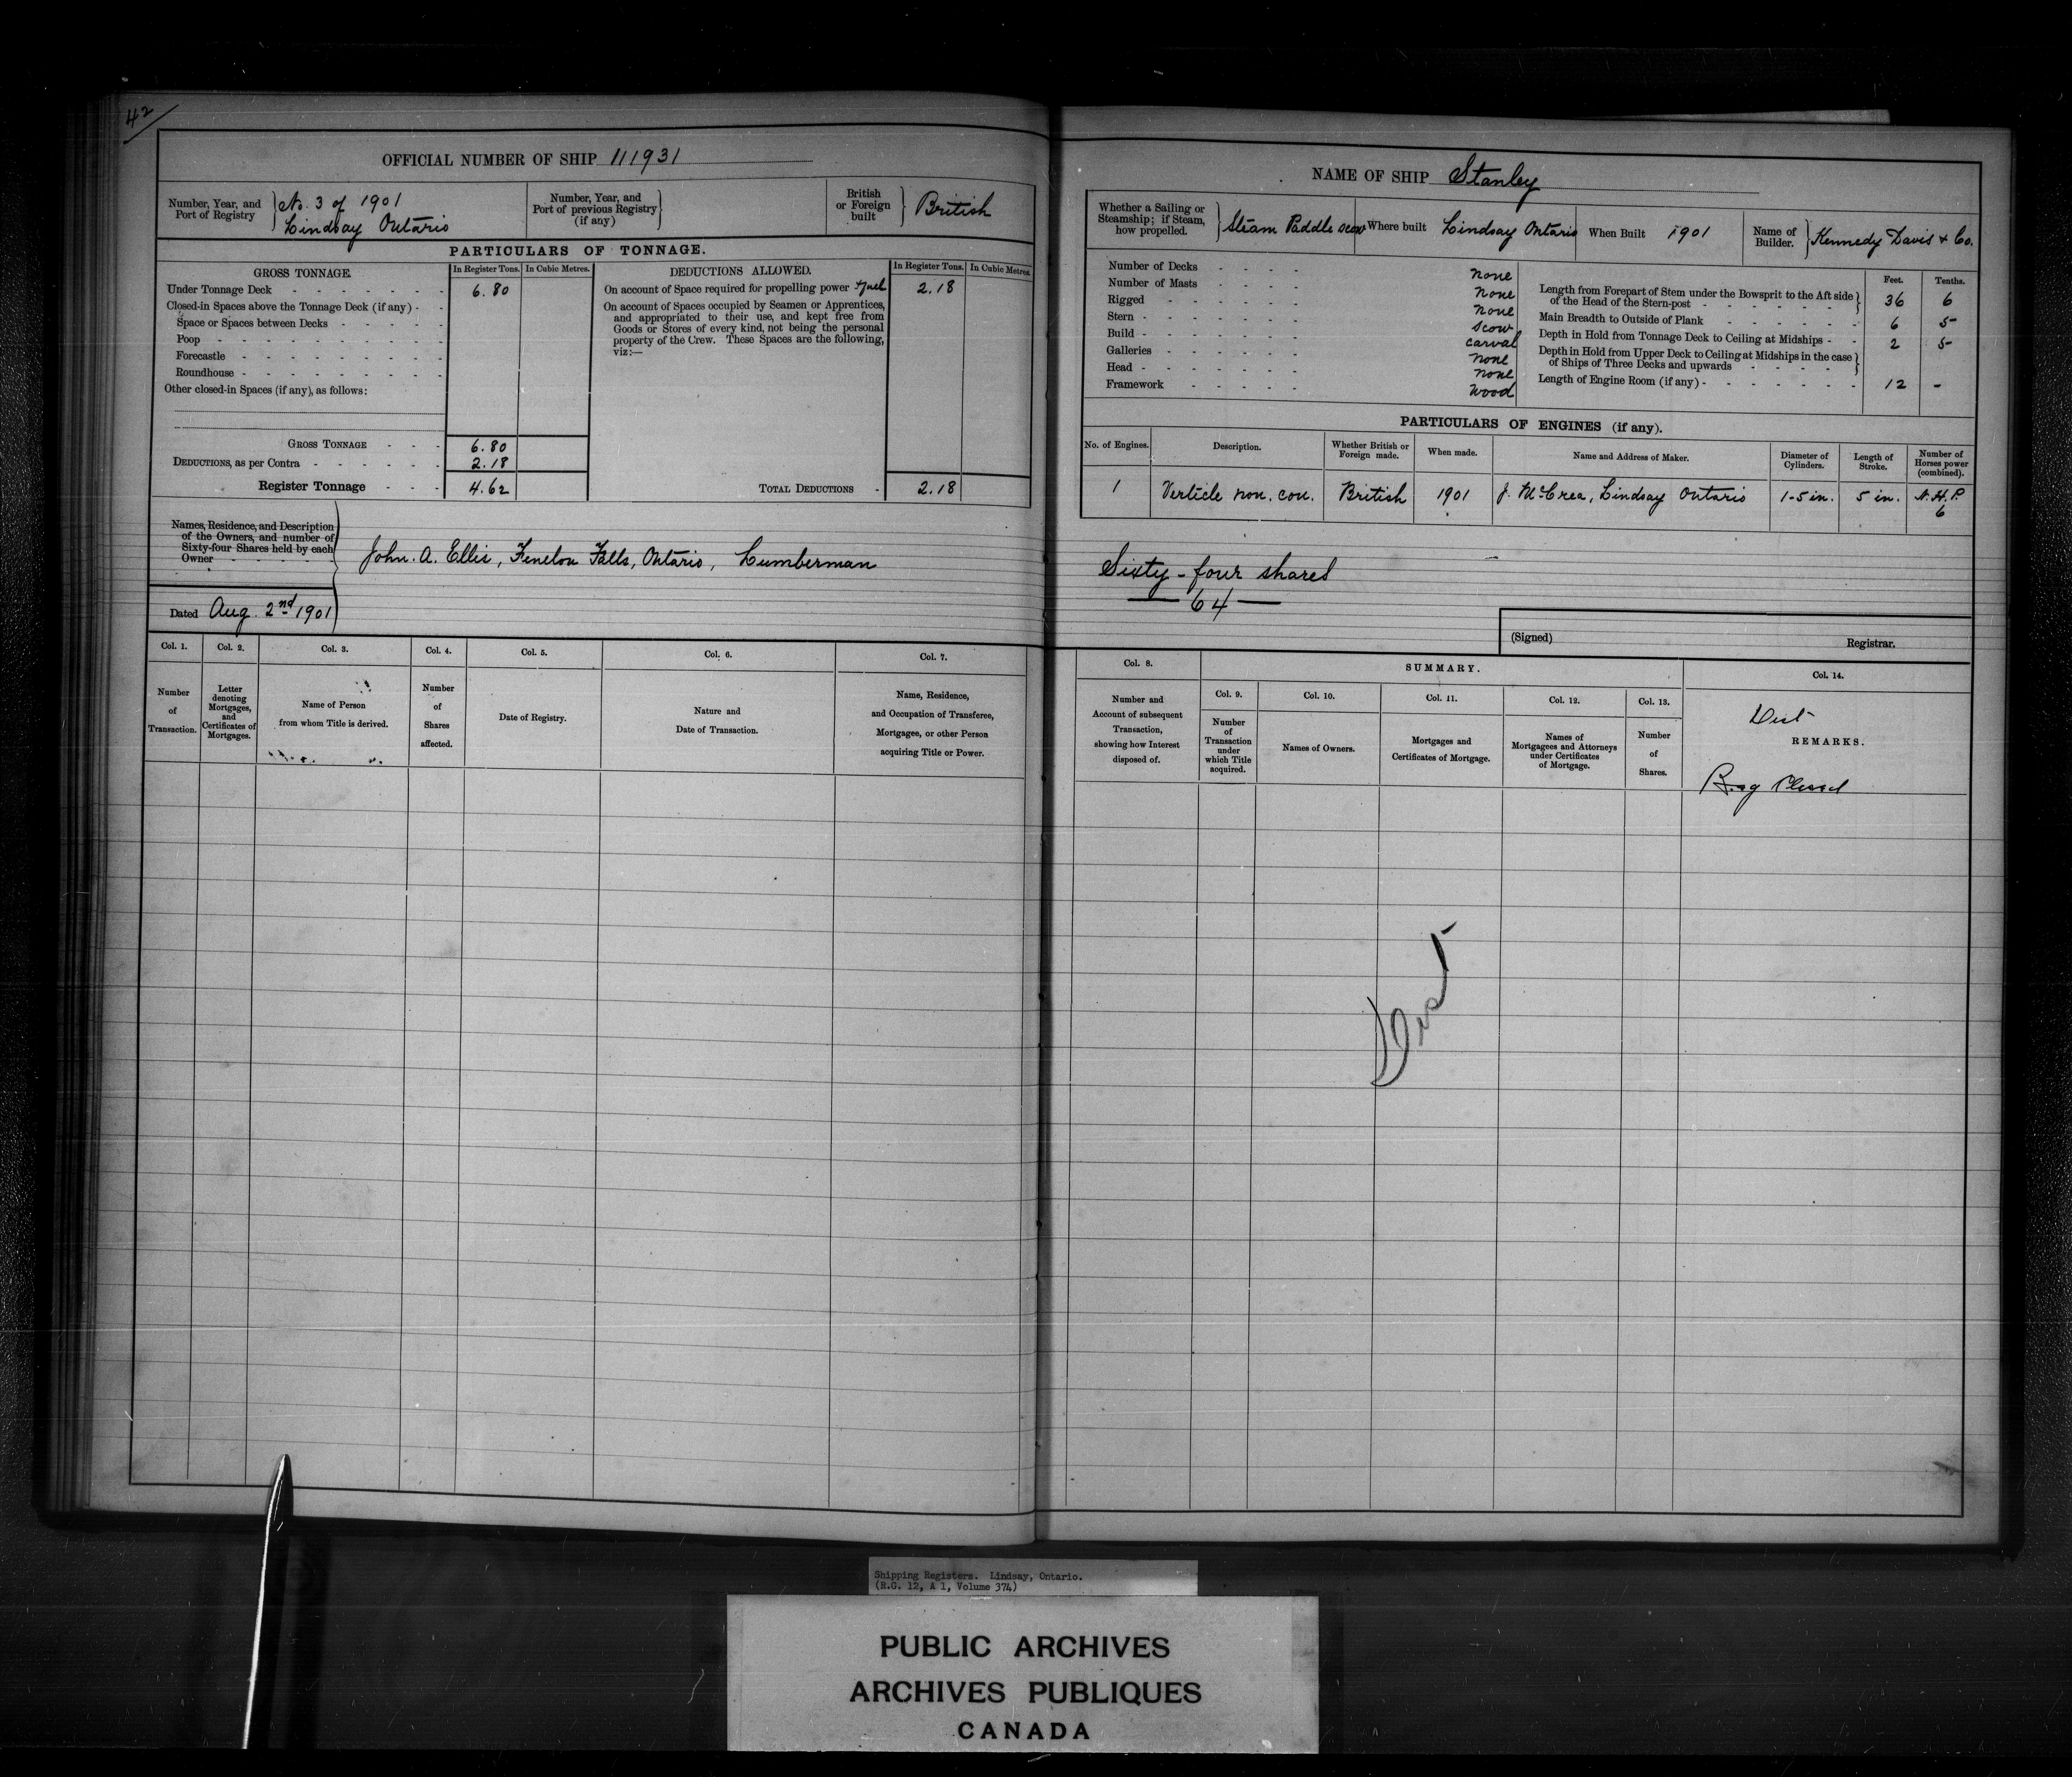 42
OFFICIAL NUMBER OF SHIP 111931
Number, Year, and Port of Registry } No. 3 of 1901 Lindsay Ontario
Number, Year, and Port of previous Registry (if any) }
British or Foreign built } British
PARTICULARS OF TONNAGE.
GROSS TONNAGE. In Register Tons. In Cubic Metres.
Under Tonnage Deck - 6.80
Closed-in Spaces above the Tonnage Deck (if any) -
Space or Spaces between Decks -
Poop -
Forecastle -
Roundhouse -
Other closed-in Spaces (if any), as follows:
GROSS TONNAGE - 6.80
DEDUCTIONS, as per Contra - 2.18
Register Tonnage - 4.62
DEDUCTIONS ALLOWED. In Register Tons. In Cubic Metres.
On account of Space required for propelling power + fuel 2.18
On account of Spaces occupied by Seamen or Apprentices,
and appropriated to their use, and kept free from
Goods or Stores of every kind, not being the personal
property of the Crew. These Spaces are the following,
viz:—
TOTAL DEDUCTIONS - 2.18
Names, Residence, and Description
of the Owners, and number of
Sixty-four Shares held by each
Owner -
John. A. Ellis, Fenelon Falls, Ontario, Lumberman
Dated Aug. 2nd 1901
Col. 1. Col. 2. Col. 3. Col. 4. Col. 5. Col. 6. Col. 7.
Number of Transaction.
Letter denoting Mortgages, and Certificates of Mortgages.
Name of Person from whom Title is derived.
Number of Shares affected.
Date of Registry.
Nature and Date of Transaction.
Name, Residence, and Occupation of Transferee, Mortgagee, or other Person acquiring Title or Power.
NAME OF SHIP Stanley
Whether a Sailing or Steamship; if Steam, how propelled. } Steam Paddle scow
Where built Lindsay Ontario
When Built 1901
Name of Builder. } Kennedy Davis & Co.
Number of Decks - none
Number of Masts - none
Rigged - none
Stern - scow
Build - carval
Galleries - none
Head - none
Framework - wood
Feet. Tenths.
Length from Forepart of Stem under the Bowsprit to the Aft side of the Head of the Stern-post - 36 6
Main Breadth to Outside of Plank - 6 5
Depth in Hold from Tonnage Deck to Ceiling at Midships - 2 5
Depth in Hold from Upper Deck to Ceiling at Midships in the case of Ships of Three Decks and upwards -
Length of Engine Room (if any) - 12 -
PARTICULARS OF ENGINES (if any).
No. of Engines. Description. Whether British or Foreign made. When made. Name and Address of Maker. Diameter of Cylinders. Length of Stroke. Number of Horses power (combined).
1 Verticle non. con. British 1901 J. McCrea, Lindsay Ontario 1-5 in. 5 in. N.H.P. 6
Sixty-four shares
— 64 —
(Signed) Registrar.
Col. 8. SUMMARY. Col. 14.
Col. 9. Col. 10. Col. 11. Col. 12. Col. 13.
Number and Account of subsequent Transaction, showing how Interest disposed of.
Number of Transaction under which Title acquired.
Names of Owners.
Mortgages and Certificates of Mortgage.
Names of Mortgagees and Attorneys under Certificates of Mortgage.
Number of Shares.
Dist
REMARKS.
Reg Closed
Dist
Shipping Registers. Lindsay, Ontario.
(R.G. 12, A 1, Volume 374)
PUBLIC ARCHIVES
ARCHIVES PUBLIQUES
CANADA